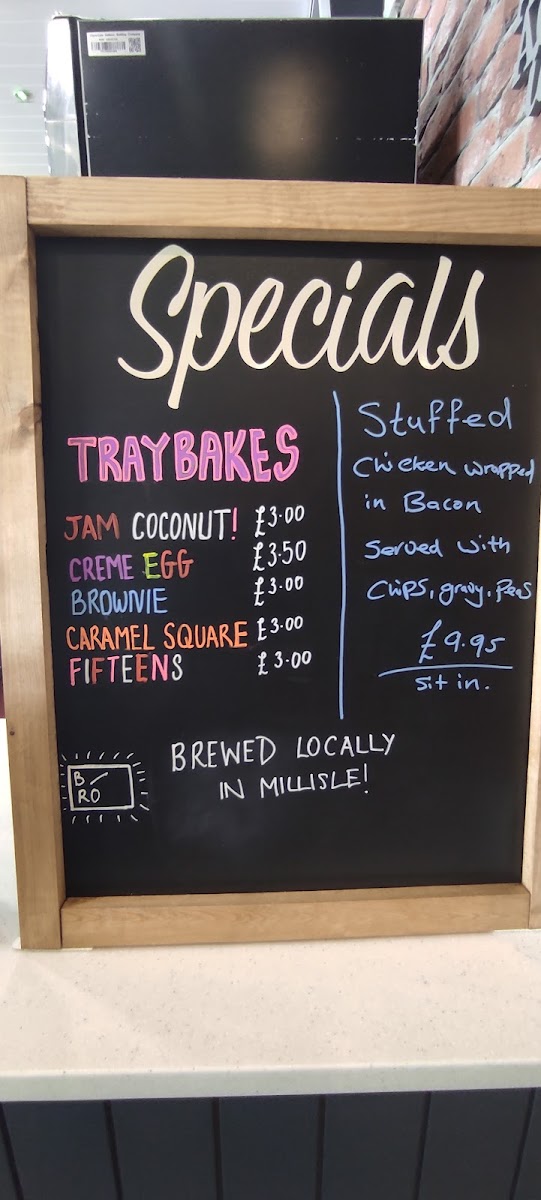 Specials
TRAYBAKES
JAM COCONUT! £3.00
CREME EGG £3.50
BROWNIE £3.00
CARAMEL SQUARE £3.00
FIFTEENS £3.00
Stuffed
Chicken wrapped
in Bacon
Served with
Chips, gravy, Peas
£9.95
sit in.
B
RO
BREWED LOCALLY
IN MILLISLE!